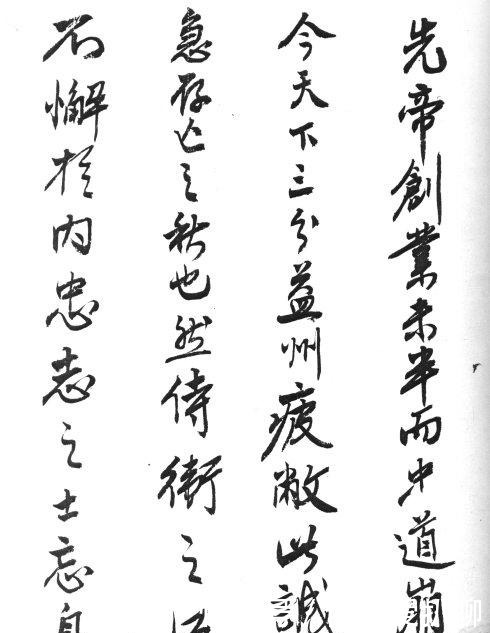 先帝創業未半而中道崩
今天下三分益州疲敝此誠
急存亡之秋也然侍衛之臣
不懈於内忠志之士忘身